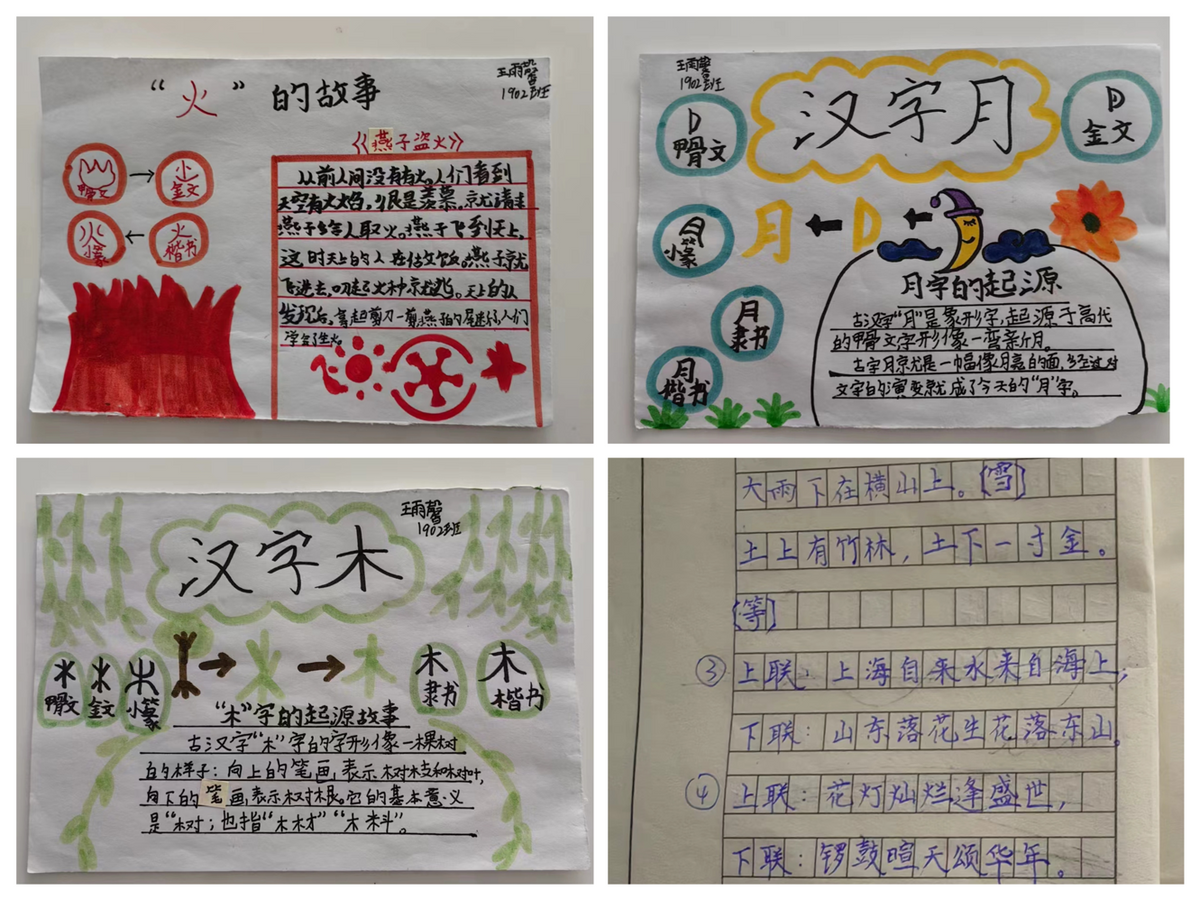 王雨馨
1902班
“火”的故事
甲骨文
金文
小篆
火
楷书
《燕子盗火》
从前人间没有火。人们看到
天空有火焰,很是羡慕。就请来
燕子给人取火。燕子飞到天上,
这时天上的人在做饭。燕子就
飞进去,叼起火种就逃。天上的人
发现后,拿起剪刀一剪燕子的尾巴,人们
学会了生火。
王雨馨
1902班
汉字月
甲骨文
金文
小篆
月
隶书
月
楷书
月
月字的起源
古汉字“月”是象形字,起源于商代
的甲骨文字形像一弯新月。
古字月就是一幅像月亮的画,经过对
文字的演变就成了今天的“月”字。
王雨馨
1902班
汉字木
甲骨文
金文
小篆
木
木
隶书
木
楷书
“木”字的起源故事
古汉字“木”字的字形像一棵树
的样子:向上的笔画,表示树枝和树叶,
向下的笔画,表示树根。它的基本意义
是“树;也指“木材”“木料”。
大雨下在横山上。(雪)
土上有竹林,土下一寸金。
(等)
③上联:上海自来水来自海上;
下联:山东落花生花落东山。
④上联:花灯灿烂逢盛世,
下联:锣鼓喧天颂华年。